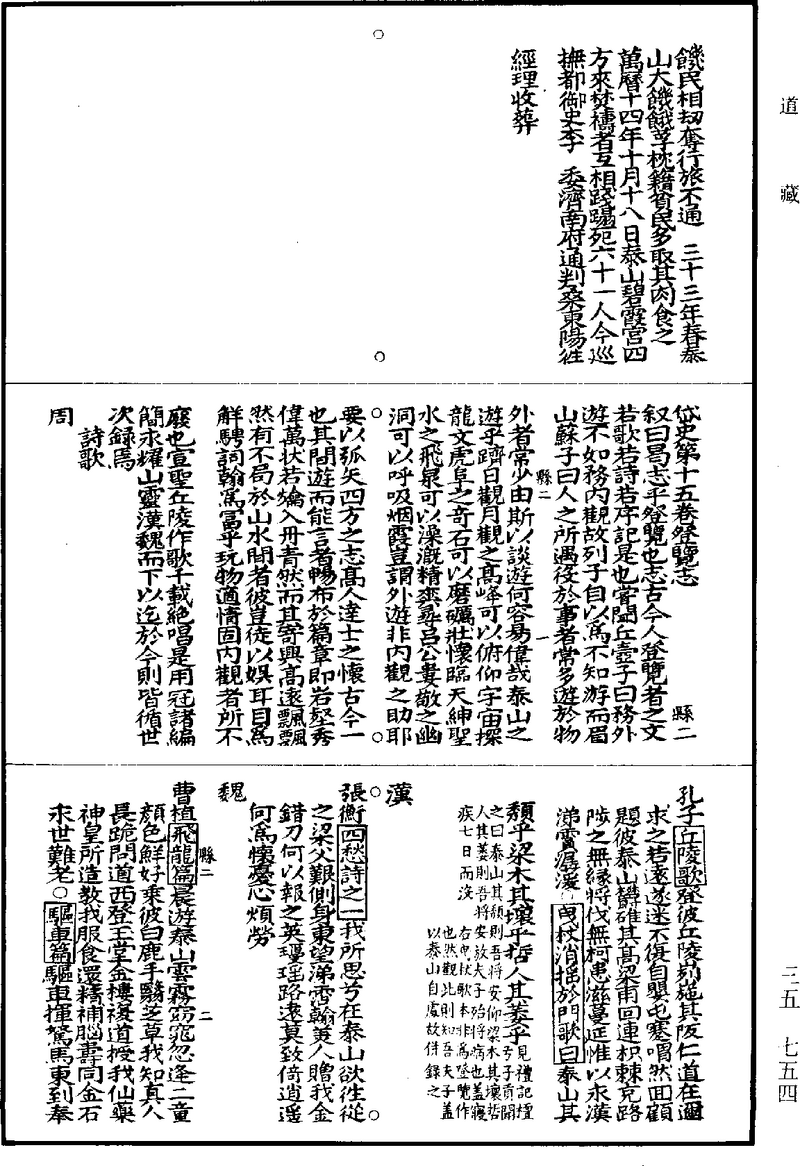 道藏
饑民相刼奪行旅不通　三十三年春泰
山大饑餓莩枕籍貧民多取其肉食之
萬曆十四年十月十八日泰山碧霞宮四
方來焚禱者互相踐蹋死六十一人今巡
撫都御史李　委濟南府通判桑東陽往
經理收葬
岱史第十五卷登覽志　縣二
叙曰曷志乎登覽也志古今人登覽者之文
若歌若詩若序記是也嘗聞丘壺子曰務外
遊不如務內觀故列子自以爲不知游而眉
山蘇子曰人之所遇役於事者常多遊於物
外者常少由斯以談遊何容易偉哉泰山之
縣二　一
遊乎躋日觀月觀之高峰可以俯仰宇宙探
龍文虎阜之奇石可以磨礪壯懷臨天紳聖
水之飛泉可以澡溉精爽尋呂公婁敬之幽
洞可以呼吸烟霞豈謂外遊非內觀之助耶
要以弧矢四方之志高人達士之懷古今一
也其間遊而能言者暢布於篇章即岩壑秀
偉萬狀若繪入丹青然而其寄興高遠飄飄
然有不局於山水間者彼豈徒以娛耳目爲
解騁詞翰爲富乎玩物適情固內觀者所不
廢也宣聖丘陵作歌千載絕唱是用冠諸編
簡永耀山靈漢魏而下以迄於今則皆循世
次錄焉
詩歌
周
孔子丘陵歌登彼丘陵峛崺其阪仁道在邇
求之若遠遂迷不復自嬰屯蹇喟然回顧
題彼泰山鬱確其高梁甫回連枳棘充路
陟之無緣將伐無柯患滋蔓延惟以永漢
涕霣潺湲　曳杖消揺於門歌曰泰山其
頹乎梁木其壞乎哲人其萎乎見禮記檀弓子貢聞
之曰泰山其頹則吾將安仰梁木其壞哲
人其萎則吾將安放夫子殆將病也蓋寢
疾七日而沒
右曳杖歌本非爲登覽作
也然觀此則知吾夫子蓋
以泰山自處故併錄之
漢
張衡四愁詩之一我所思兮在泰山欲往從
之梁父艱側身東望涕霑翰美人贈我金
錯刀何以報之英瓊瑤路遠莫致倚逍遥
何爲懷憂心煩勞
魏
曹植飛龍篇晨游泰山雲霧窈窕忽逢二童
縣二　二
顏色鮮好乘彼白鹿手翳芝草我知真人
長跪問道西登玉堂金樓複道授我仙藥
神皇所造教我服食還精補腦壽同金石
永世難老○驅車篇驅車揮駑馬東到奉
三五　七五四